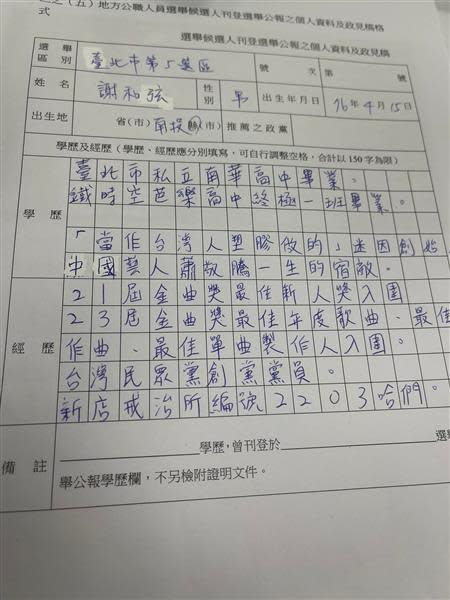 （五）地方公職人員選舉候選人刊登選舉公報之個人資料及政見稿格
式
選舉候選人刊登選舉公報之個人資料及政見稿
選舉區別 臺北市第5選區 號次 第 號
姓名 謝和弦 性別 男 出生年月日 76年4月15日
出生地 省(市)南投縣(市) 推薦之政黨
學歷及經歷（學歷、經歷應分別填寫，可自行調整空格，合計以150字為限）
學歷
臺北市私立南華高中畢業。
鐵時空芭樂高中終極一班畢業。
「當作台灣人塑膠做的」迷因創始
中國藝人蕭敬騰一生的宿敵。
經歷
21屆金曲獎最佳新人獎入圍
23屆金曲獎最佳年度歌曲、最佳
作曲、最佳單曲製作人入圍。
台灣民眾黨創黨黨員。
新店戒治所編號2203哈們。
備註
學歷，曾刊登於 選
舉公報學歷欄，不另檢附證明文件。